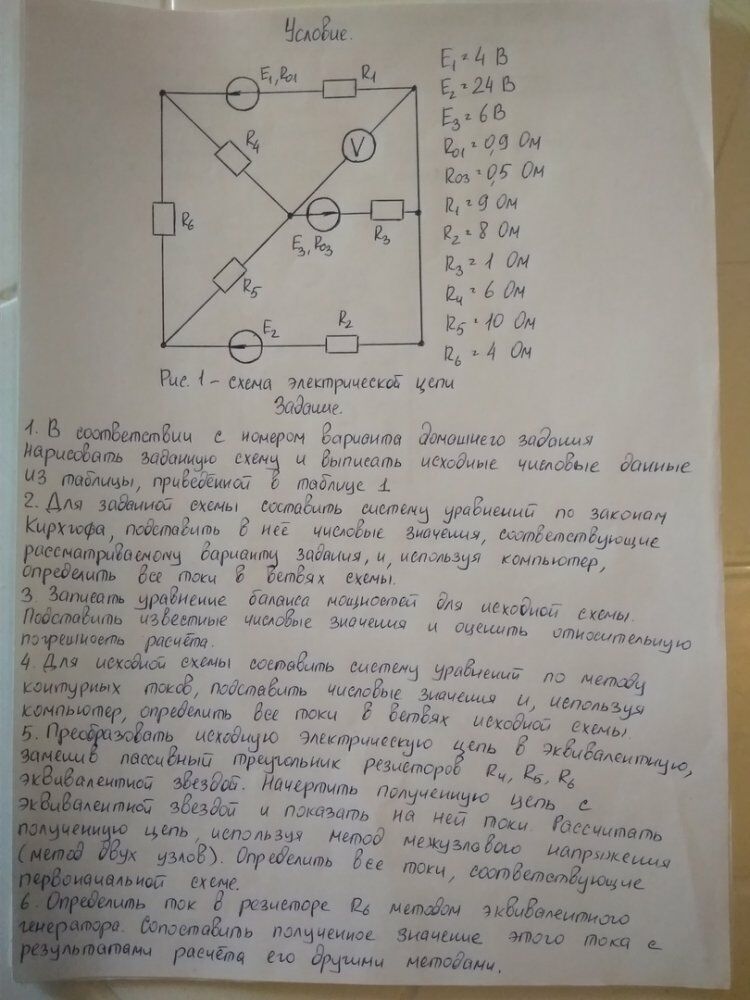 Условие.
E1, R01
R1
R4
V
R6
E3, R03
R3
R5
E2
R2
E1 = 4 В
E2 = 24 В
E3 = 6 В
R01 = 0,9 Ом
R03 = 0,5 Ом
R1 = 9 Ом
R2 = 8 Ом
R3 = 1 Ом
R4 = 6 Ом
R5 = 10 Ом
R6 = 4 Ом
Рис. 1 - схема электрической цепи
Задание.
1. В соответствии с номером варианта домашнего задания
нарисовать заданную схему и выписать исходные числовые данные
из таблицы, приведённой в таблице 1
2. Для заданной схемы составить систему уравнений по законам
Кирхгофа, подставить в неё числовые значения, соответствующие
рассматриваемому варианту задания, и, используя компьютер,
определить все токи в ветвях схемы.
3. Записать уравнение баланса мощностей для исходной схемы.
Подставить известные числовые значения и оценить относительную
погрешность расчёта.
4. Для исходной схемы составить систему уравнений по методу
контурных токов, подставить числовые значения и, используя
компьютер, определить все токи в ветвях исходной схемы.
5. Преобразовать исходную электрическую цепь в эквивалентную,
заменив пассивный треугольник резисторов R4, R5, R6
эквивалентной звездой. Начертить полученную цепь с
эквивалентной звездой и показать на ней токи. Рассчитать
полученную цепь, используя метод межузлавого напряжения
(метод двух узлов). Определить все токи, соответствующие
первоначальной схеме.
6. Определить ток в резисторе R6 методом эквивалентного
генератора. Сопоставить полученное значение этого тока с
результатами расчёта его другими методами.